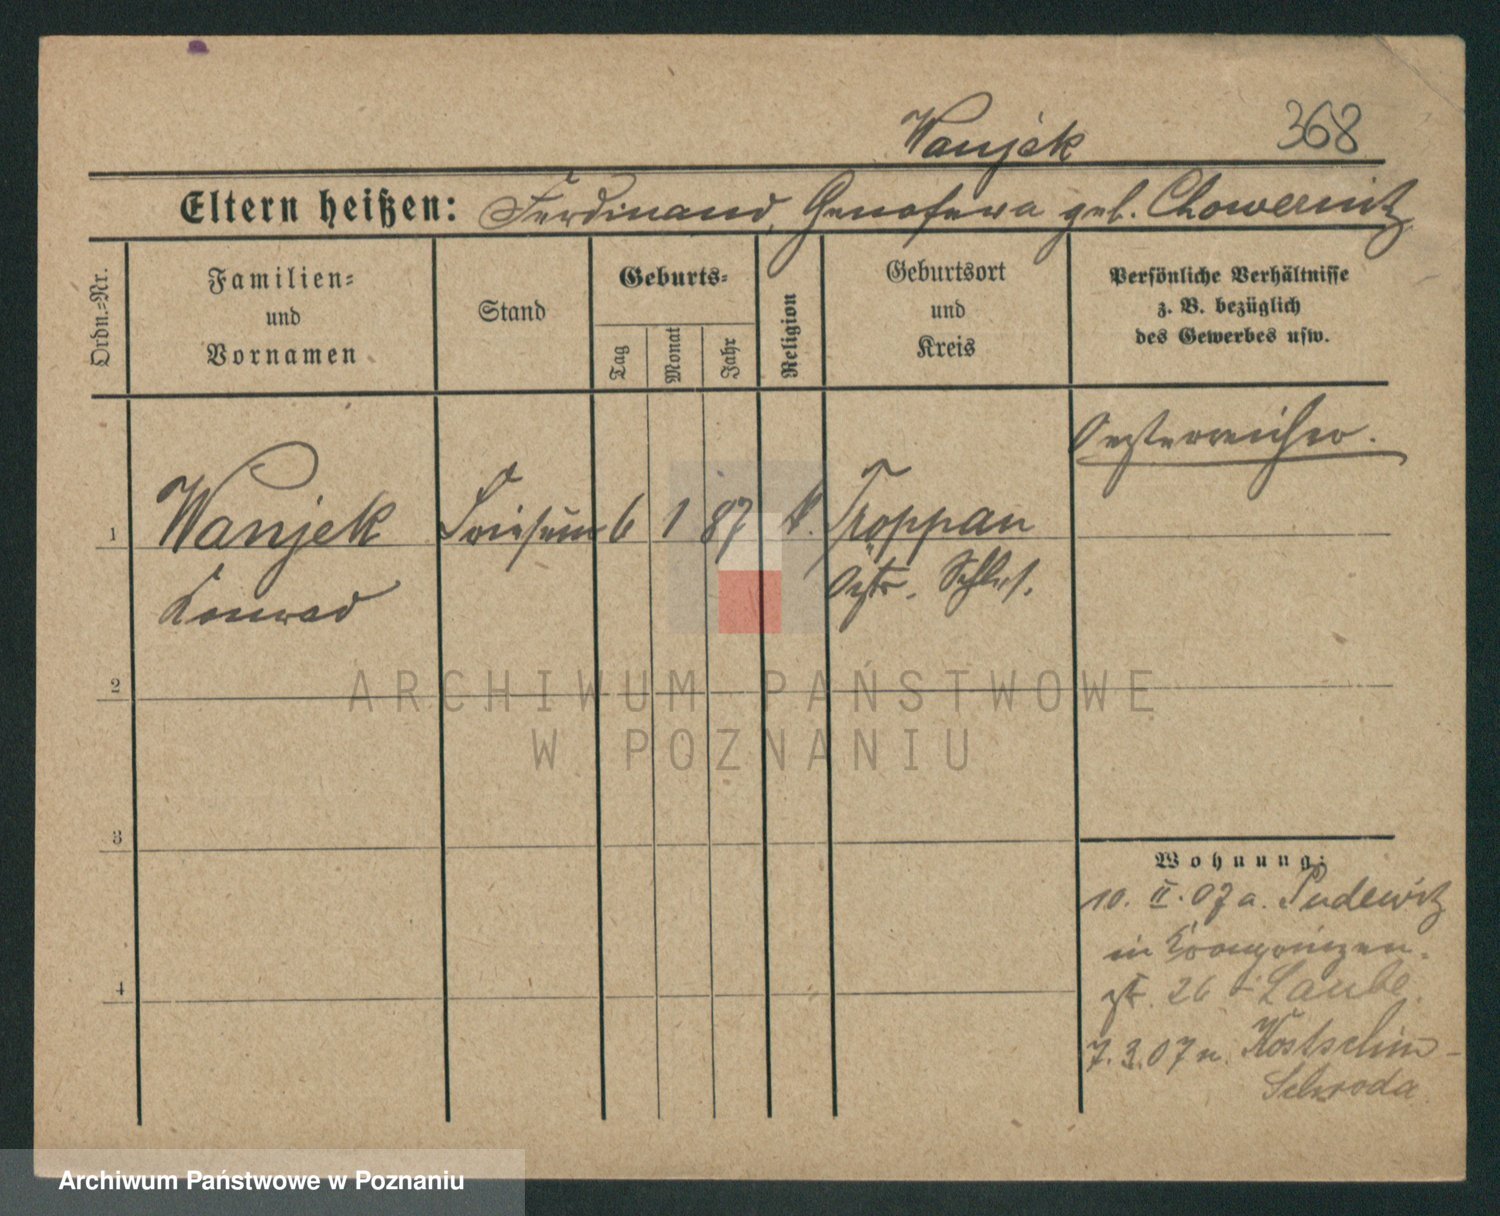 Wanjek 368
Eltern heißen: Ferdinand, Genofeva geb. Chowernitz
Ordn.-Nr.
Familien-
und
Vornamen
Stand
Geburts-
Tag
Monat
Jahr
Religion
Geburtsort
und
Kreis
Persönliche Verhältnisse
z. B. bezüglich
des Gewerbes usw.
Oesterreicher.
1 Wanjek 6 1 87 k. Troppau
Konrad Östr. Schles.
2
ARCHIWUM PAŃSTWOWE
W POZNANIU
3
Wohnung:
10. II. 07 a. Pudewitz
in Kronprinzen-
str. 26 Laube.
7. 3. 07 n. Kostschin-
Schroda
4
Archiwum Państwowe w Poznaniu